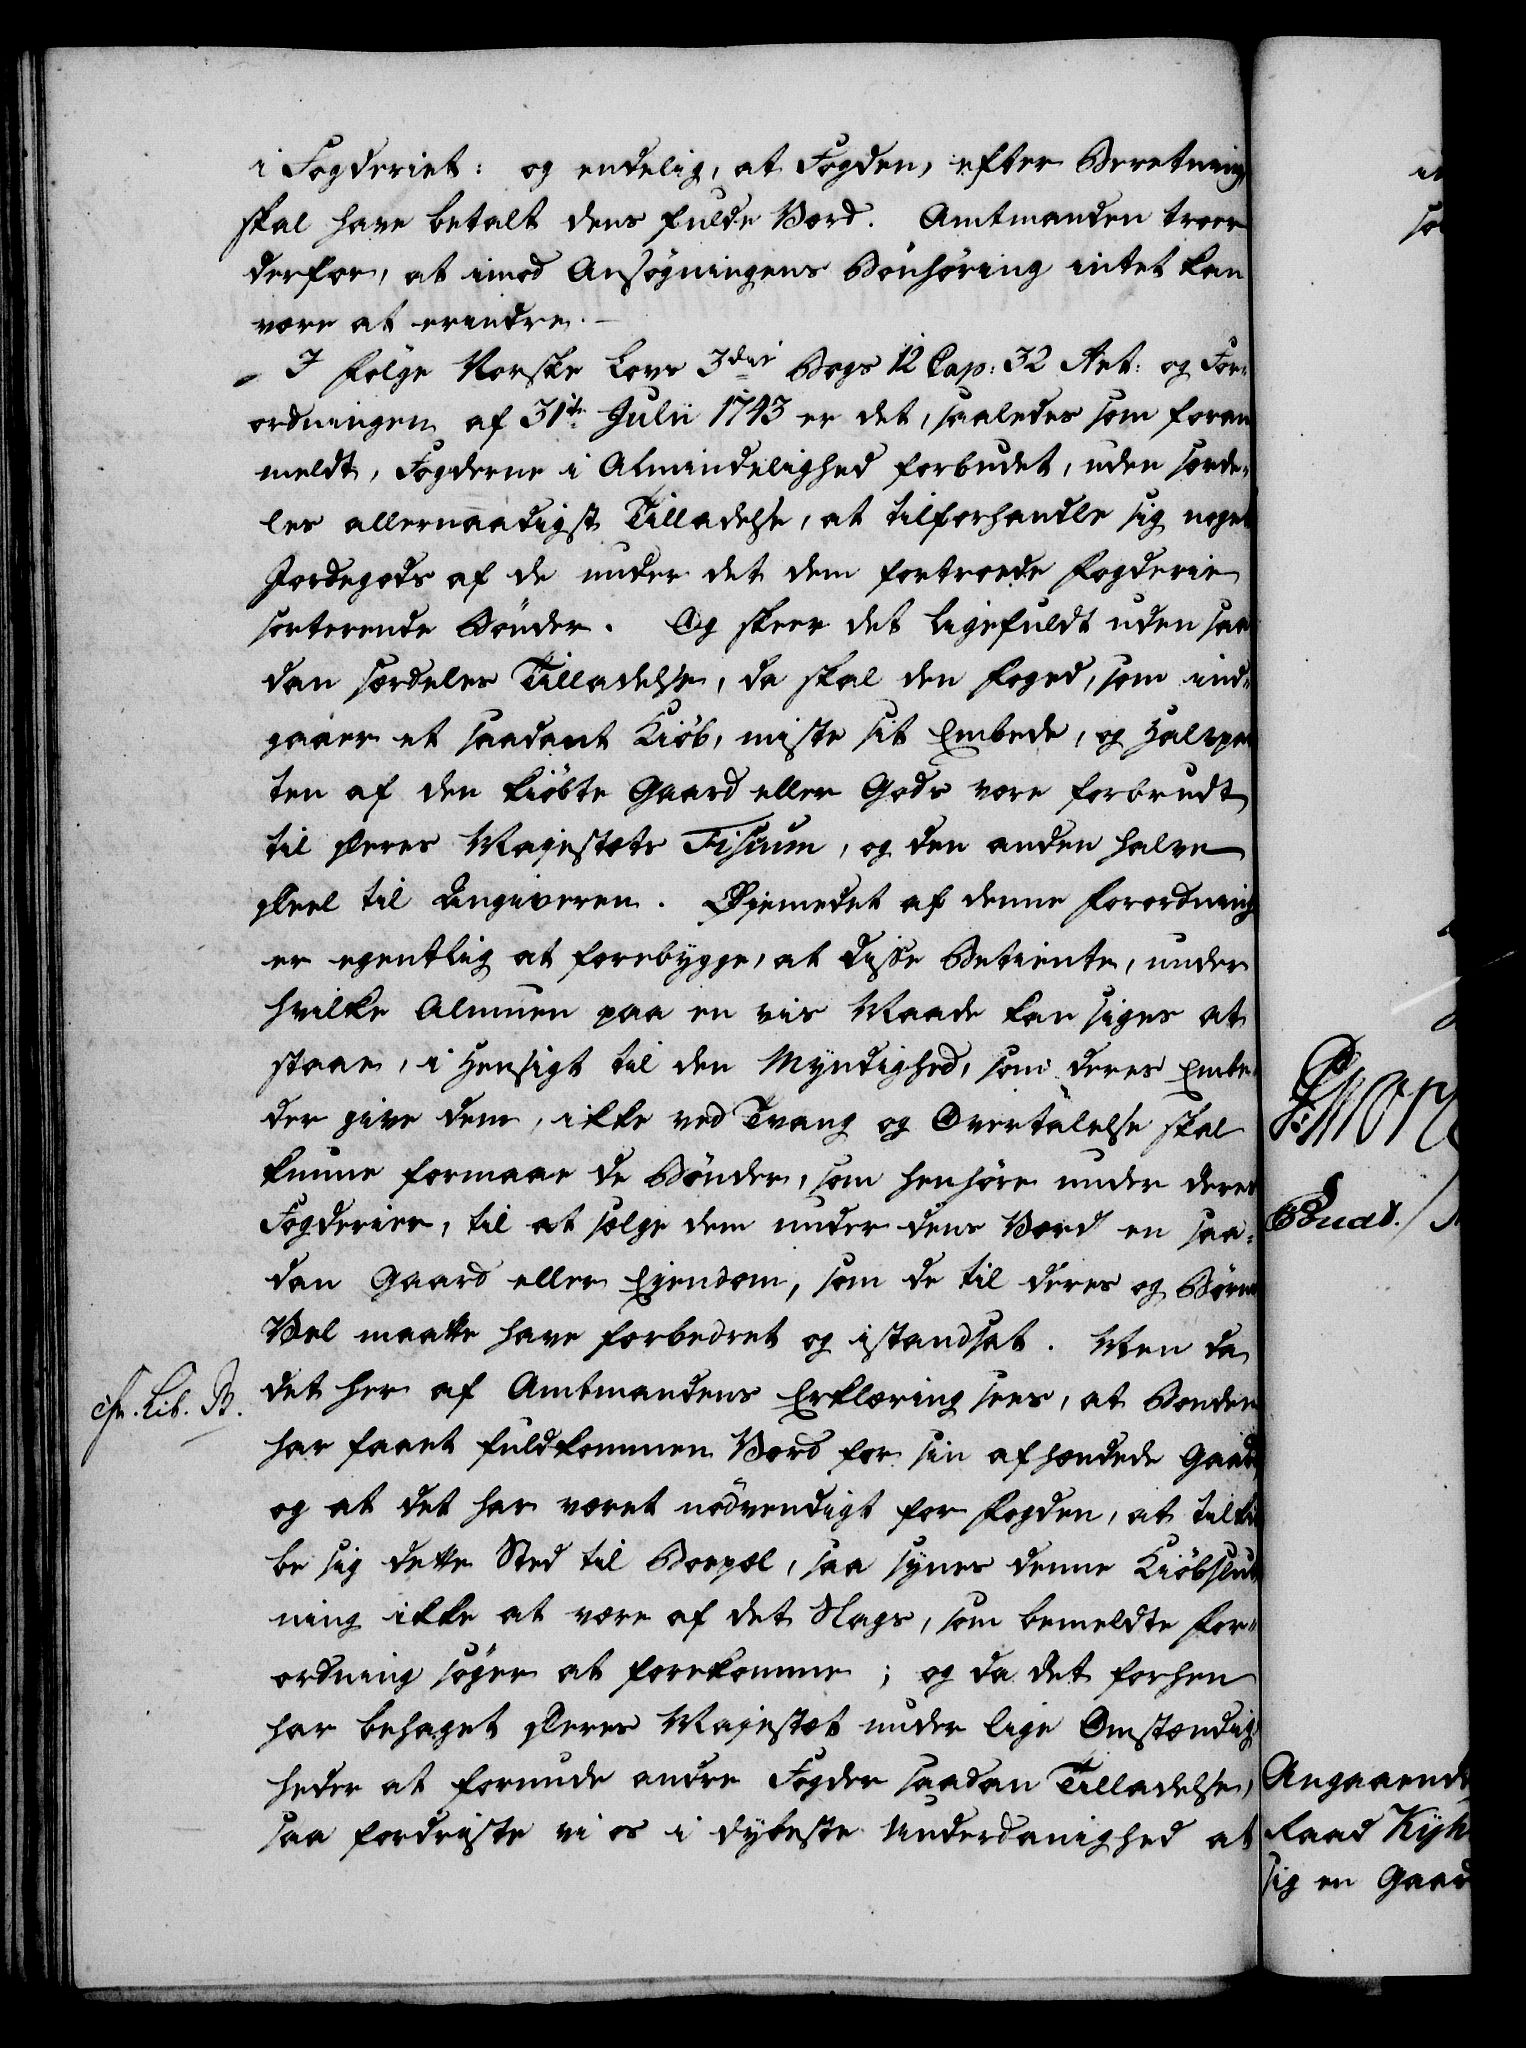 i Fogderiet: og endelig, at Fogden, efter Beretning
skal have betalt dens fulde Værd. Amtmanden troer
derfor, at imod Ansøgningens Bönhøring intet kan
være at erindre.
I følge Norske Lovs 3die Bogs 12 Cap: 32 Art: og For-
ordningen af 31te Julii 1743 er det, saaledes som foran
meldt, Fogderne i Almindelighed forbudet, uden særde-
les allernaadigst Tilladelse, at tilforhandle sig noget
Jordegods af de under det dem fortroede Fogderie
sorterende Bønder. Og skeer det ligefuldt uden saa
dan særdeles Tilladelse, da skal den Foged, som ind-
gaaer et saadant Kiöb, miste sit Embede, og Halvpar
ten af den kiöbte Gaard eller Gods være forbrudt
til Deres Majestæts Fiscum, og den anden halve
Deel til Angiveren. Øjemedet af denne Forordning
er egentlig at forebygge, at disse Betiente, under
hvilke Almuen paa en vis Maade kan siges at
staae, i Hensigt til den Myndighed, som deres Embe
der give dem, ikke ved Tvang og Overtalelse skal
kunne formaae de Bönder, som henhøre under deres
Fogderier, til at sælge dem under dens Værd en saa-
dan Gaard eller Ejendom, som de til deres og Børns
Vel maatte have forbedret og istandsat. Men da
cfr. Lib. B.
det her af Amtmandens Erklæring sees, at Bonden
har faaet fuldkommen Værd for sin afhændede Gaard
og at det har været nödvendigt for Fogden, at tilkiö
be sig dette Sted til Boepæl, saa synes denne Kiöbslut
ning ikke at være af det Slags, som bemeldte For-
ordning söger at forekomme; og da det forhen
har behaget Deres Majestæt under lige Omstændig
heder at forunde andre Fogder saadan Tilladelse,
saa fordriste vi os i dybeste Underdanighed at
Angaaende
Raad
sig en Gaard